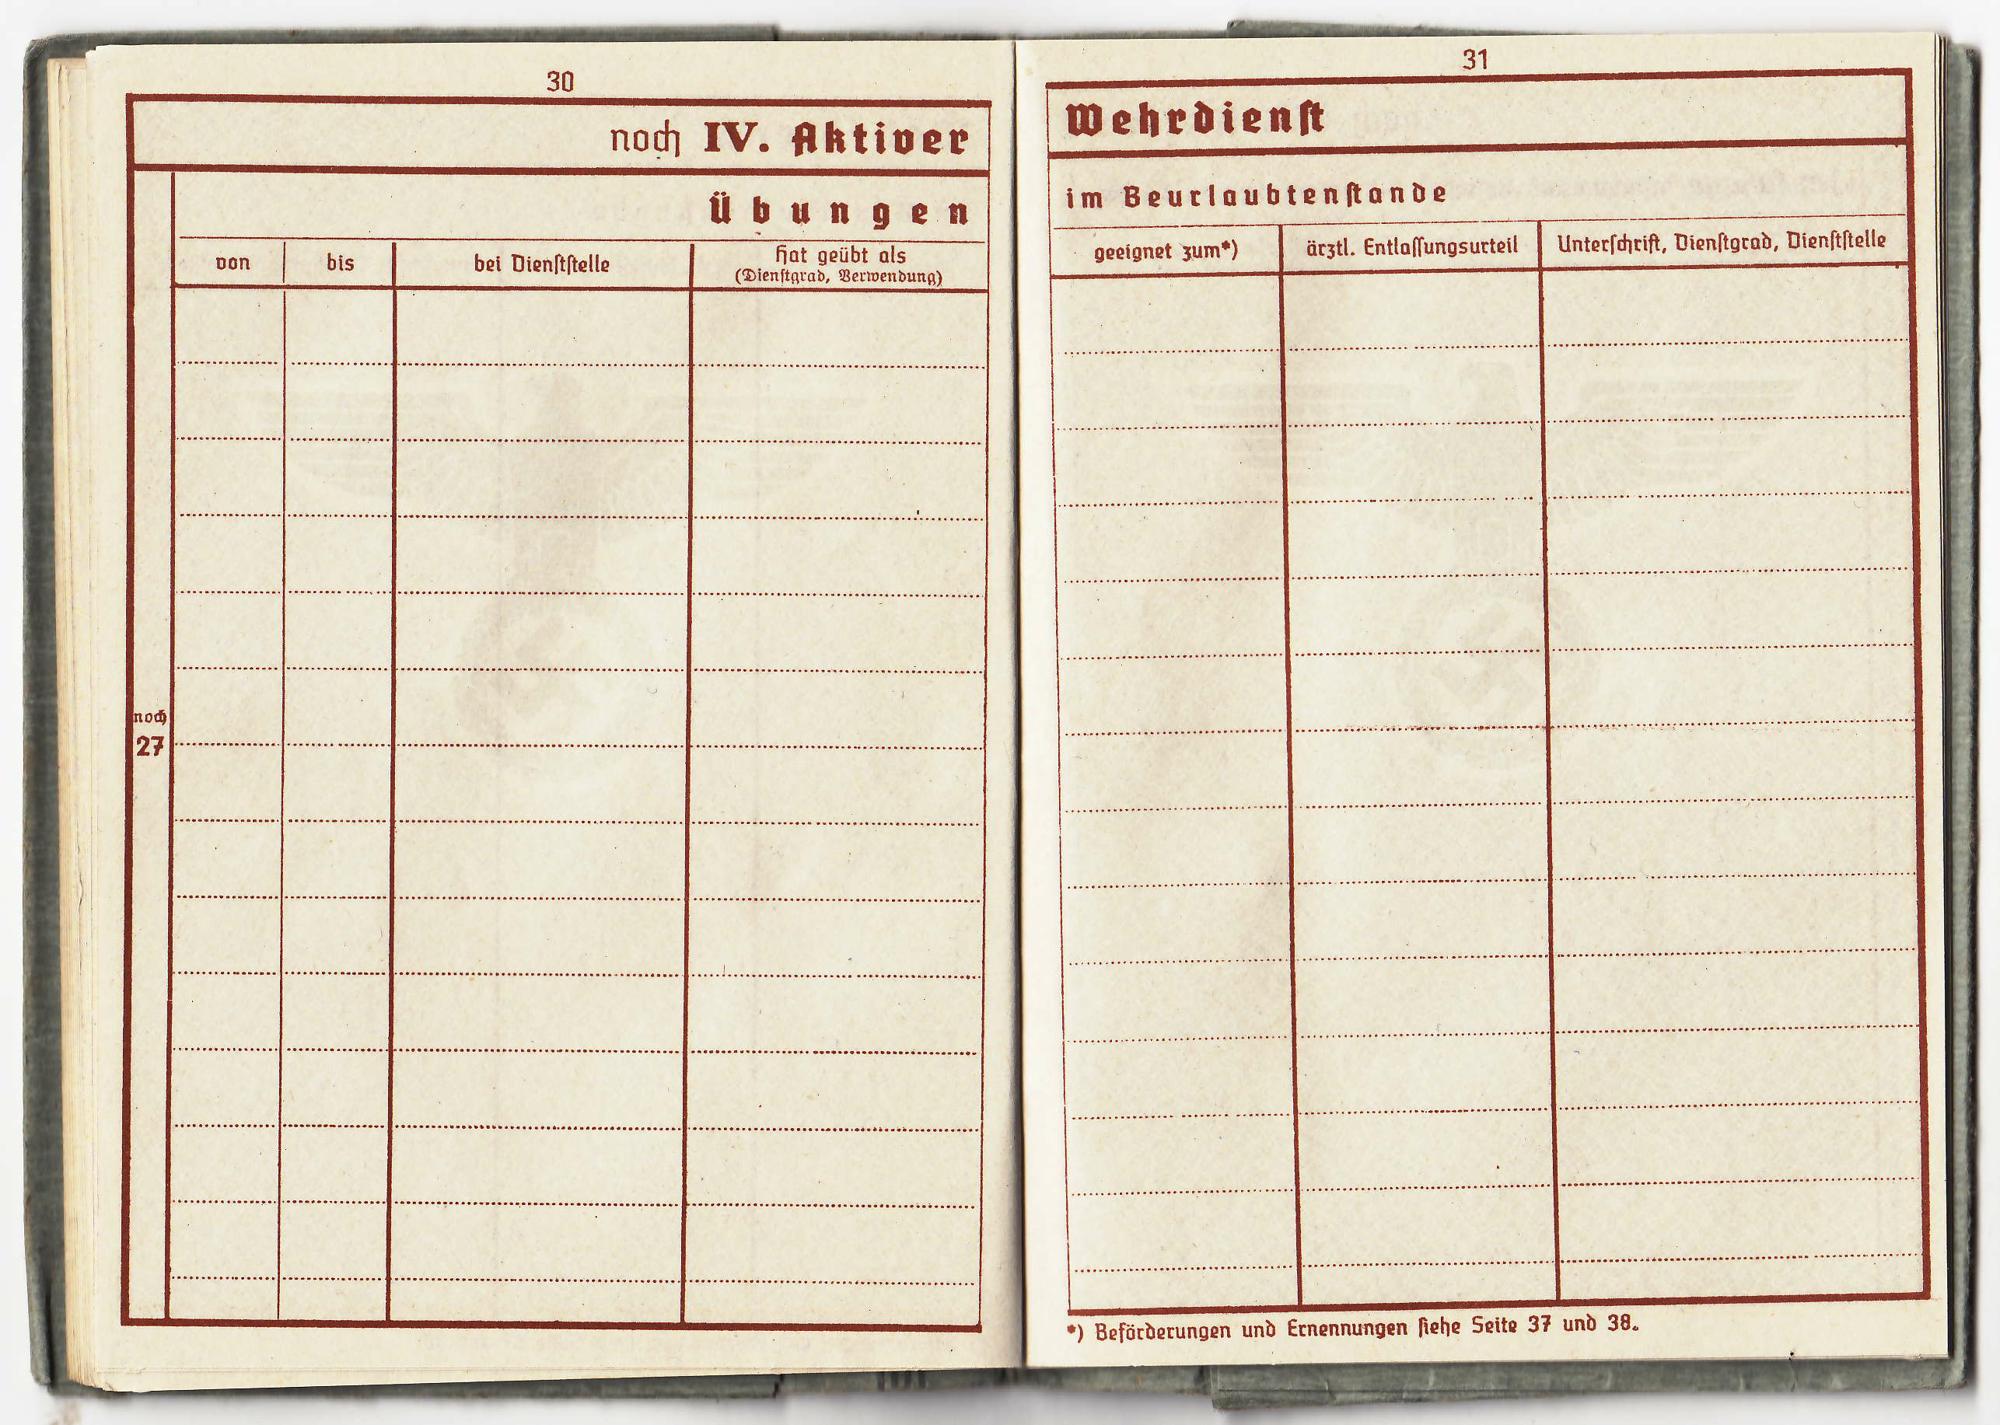 30
noch IV. Aktiver
Übungen
von bis bei Dienststelle Hat geübt als
(Dienstgrad, Verwendung)
noch
27
31
Wehrdienst
im Beurlaubtenstande
geeignet zum*) ärztl. Entlassungsurteil Unterschrift, Dienstgrad, Dienststelle
*) Beförderungen und Ernennungen siehe Seite 37 und 38.